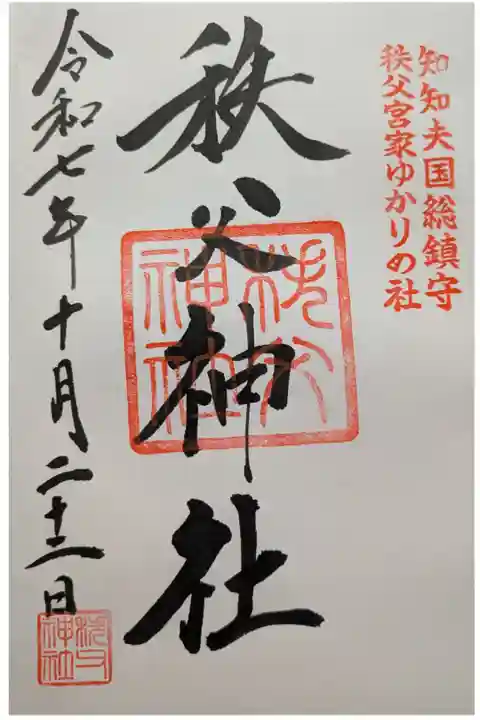 知知夫国総鎮守
秩父宮家ゆかりの社
秩父神社
秩父神社
令和七年十月二十二日
秩父神社